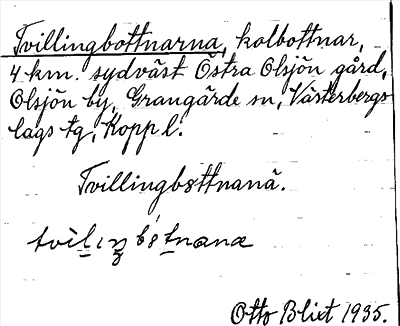 Tvillingbottnarna, kolbottnar,
4 km. sydväst Östra Olsjön gård,
Olsjön by, Grangärde sn, Västerbergs
lags tg, Kopp l.
Tvillingbottnanä.
Otto Blixt 1935.